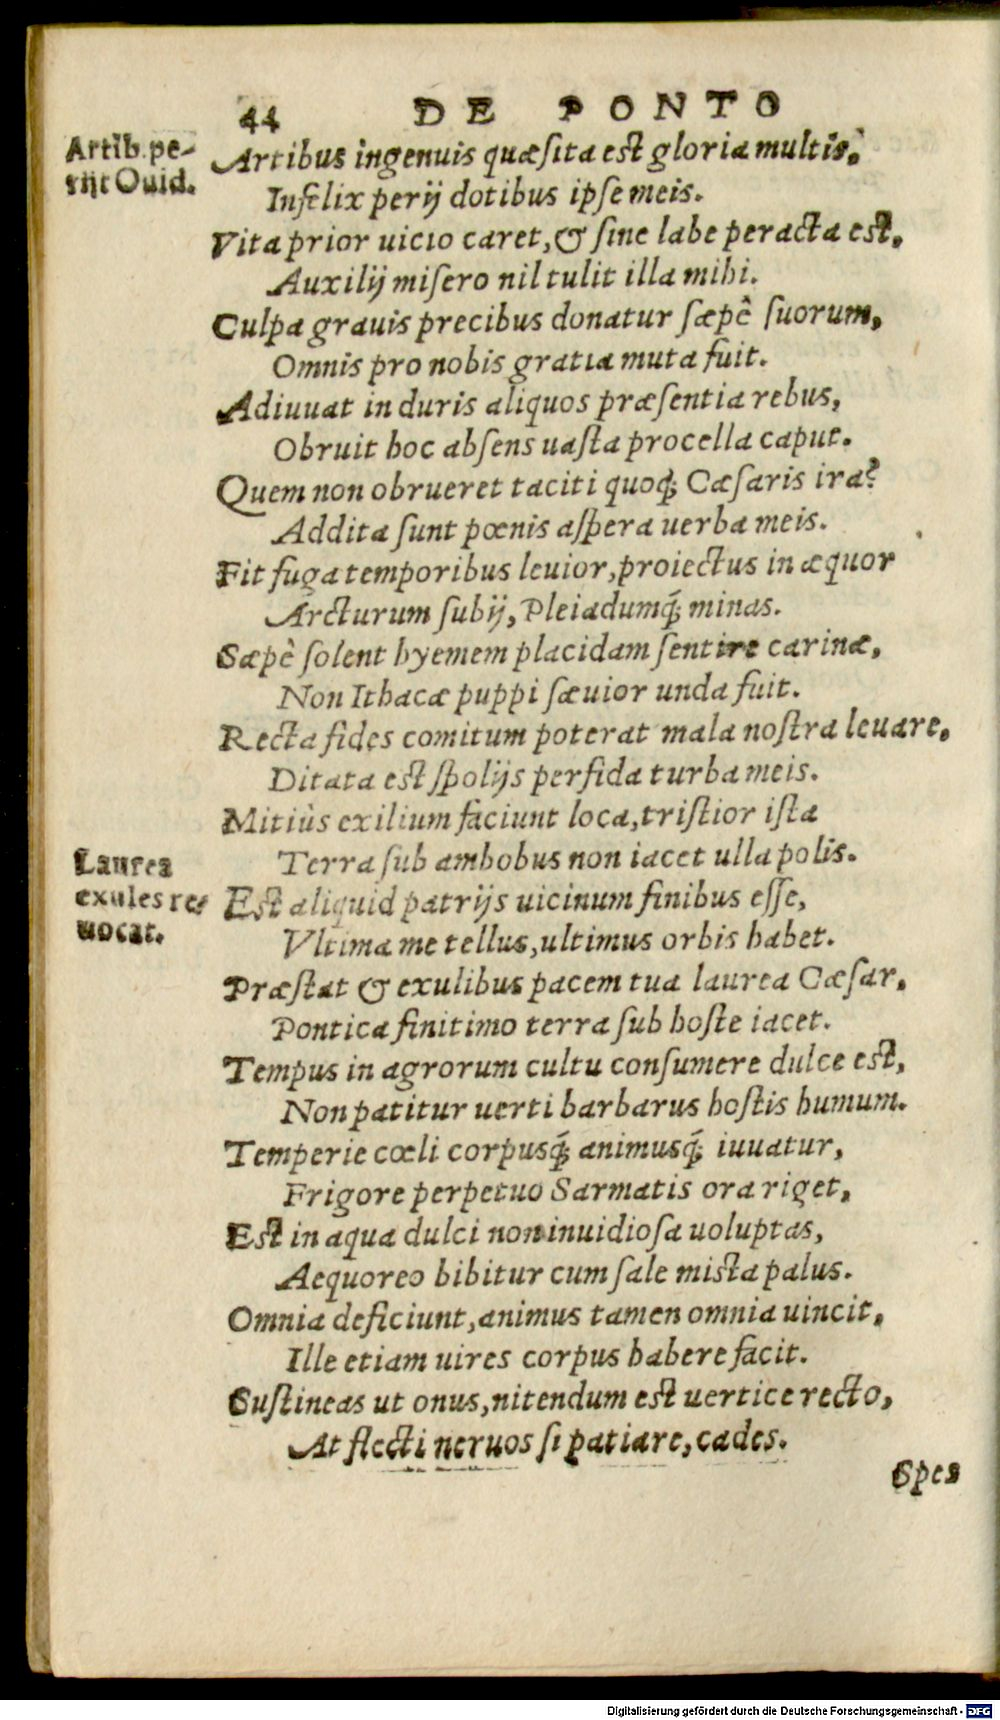 44 DE PONTO
Artib. pe-
rijt Ouid.
Artibus ingenuis quæſita est gloria multis,
Infelix perij dotibus ipſe meis.
Vita prior uicio caret, & ſine labe peracta est,
Auxilij miſero nil tulit illa mihi.
Culpa grauis precibus donatur ſæpè ſuorum,
Omnis pro nobis gratia muta fuit.
Adiuuat in duris aliquos præſentia rebus,
Obruit hoc abſens uaſta procella caput.
Quem non obrueret taciti quoq; Cæſaris ira?
Addita ſunt pœnis aſpera uerba meis.
Fit fuga temporibus leuior, proiectus in æquor
Arcturum ſubij, Pleiadumq́; minas.
Sæpè ſolent hyemem placidam ſentire carinæ,
Non Ithacæ puppi ſæuior unda fuit.
Recta fides comitum poterat mala noſtra leuare,
Ditata est ſpolijs perfida turba meis.
Mitiùs exilium faciunt loca, triſtior iſta
Terra ſub ambobus non iacet ulla polis.
Laurea
exules re-
uocat.
Est aliquid patrijs uicinum finibus eſſe,
Vltima me tellus, ultimus orbis habet.
Præſtat & exulibus pacem tua laurea Cæſar,
Pontica finitimo terra ſub hoſte iacet.
Tempus in agrorum cultu conſumere dulce est,
Non patitur uerti barbarus hoſtis humum.
Temperie cœli corpusq́; animusq́; iuuatur,
Frigore perpetuo Sarmatis ora riget,
Est in aqua dulci non inuidioſa uoluptas,
Aequoreo bibitur cum ſale miſta palus.
Omnia deficiunt, animus tamen omnia uincit,
Ille etiam uires corpus habere facit.
Suſtineas ut onus, nitendum est uertice recto,
At flecti neruos ſi patiare, cades.
Spes
Digitalisierung gefördert durch die Deutsche Forschungsgemeinschaft - DFG